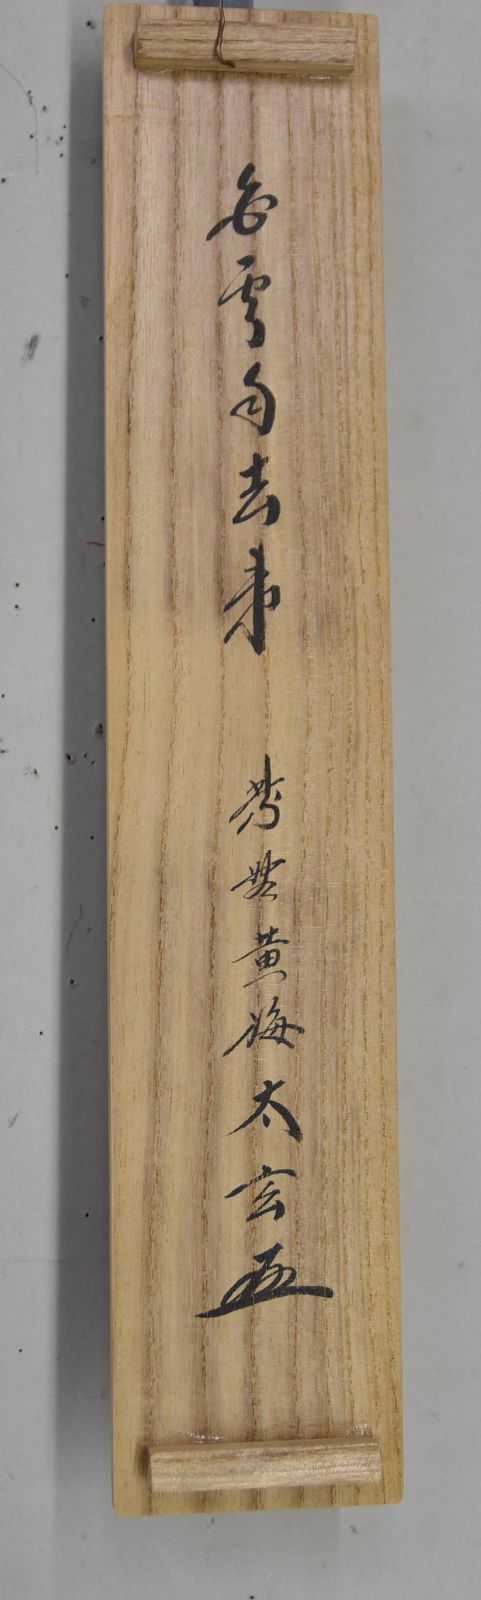 白雲自去来　紫埜黄梅太玄